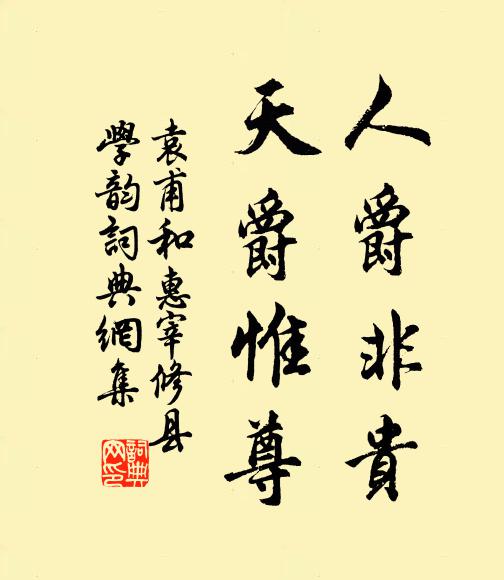 人爵非貴
天爵惟尊
袁甫和惠宰修县
學韵詞典網集
詞典
网印